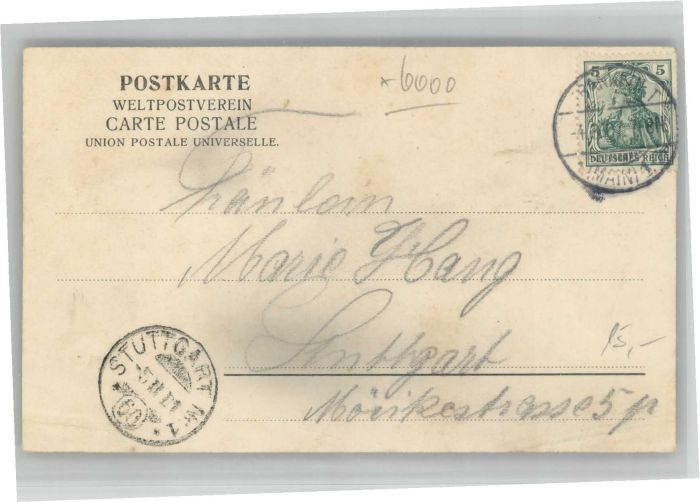 POSTKARTE
WELTPOSTVEREIN
CARTE POSTALE
UNION POSTALE UNIVERSELLE.
*6000
5 5
DEUTSCHES REICH
(MAIN) 1
Fräulein
Marie Haug
Stuttgart
15,-
Mörikestrasse 5 p
STUTTGART Nr. 1